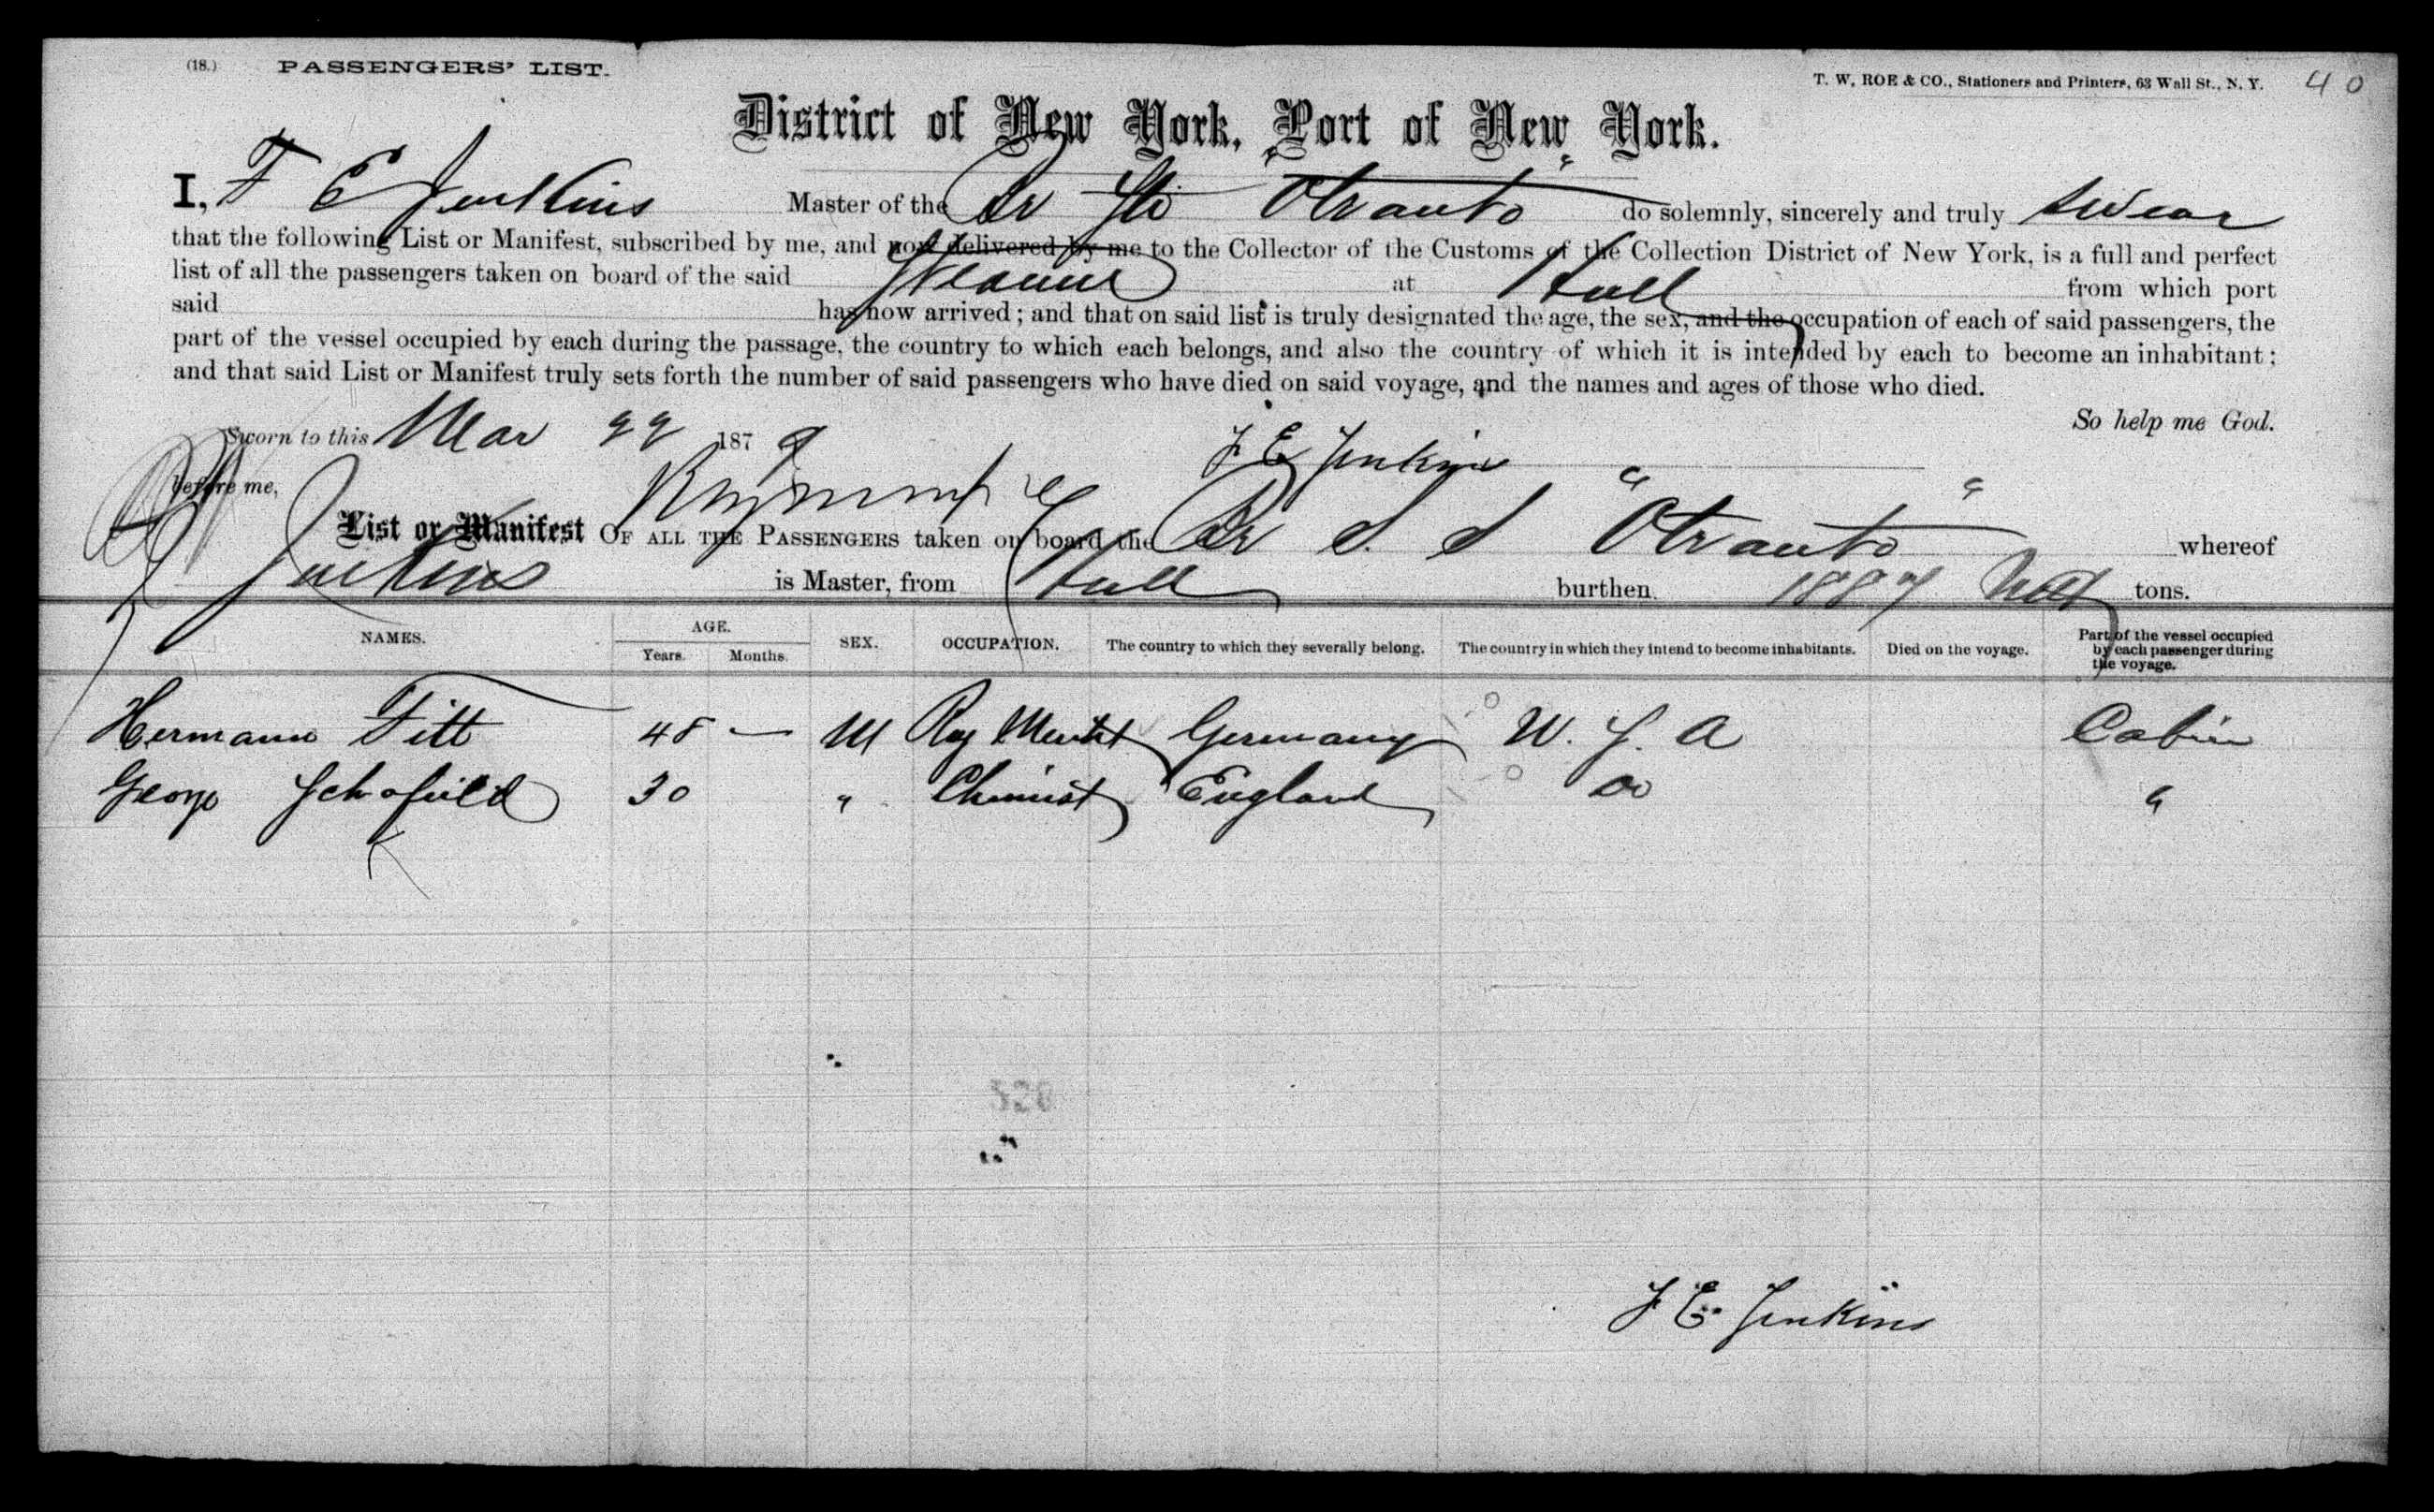 (18.) PASSENGERS' LIST. T. W. ROE & CO., Stationers and Printers, 63 Wall St., N. Y. 40
District of New York, Port of New York.
I, F E Jenkins Master of the Br Str "Otranto" do solemnly, sincerely and truly swear
that the following List or Manifest, subscribed by me, and now delivered by me to the Collector of the Customs of the Collection District of New York, is a full and perfect
list of all the passengers taken on board of the said Steamer at Hull from which port
said has now arrived; and that on said list is truly designated the age, the sex, and the occupation of each of said passengers, the
part of the vessel occupied by each during the passage, the country to which each belongs, and also the country of which it is intended by each to become an inhabitant;
and that said List or Manifest truly sets forth the number of said passengers who have died on said voyage, and the names and ages of those who died.
So help me God.
Sworn to this Mar 22 1879 F E Jenkins
before me,
List or Manifest OF ALL THE PASSENGERS taken on board the Br S. S "Otranto" whereof
Jenkins is Master, from Hull burthen 1887 tons.
NAMES. AGE. Years. Months. SEX. OCCUPATION. The country to which they severally belong. The country in which they intend to become inhabitants. Died on the voyage. Part of the vessel occupied by each passenger during the voyage.
Hermann Titt 48 — M Germany U. S. A Cabin
George Schofield 30 " Chemist England Do "
320
F E Jenkins